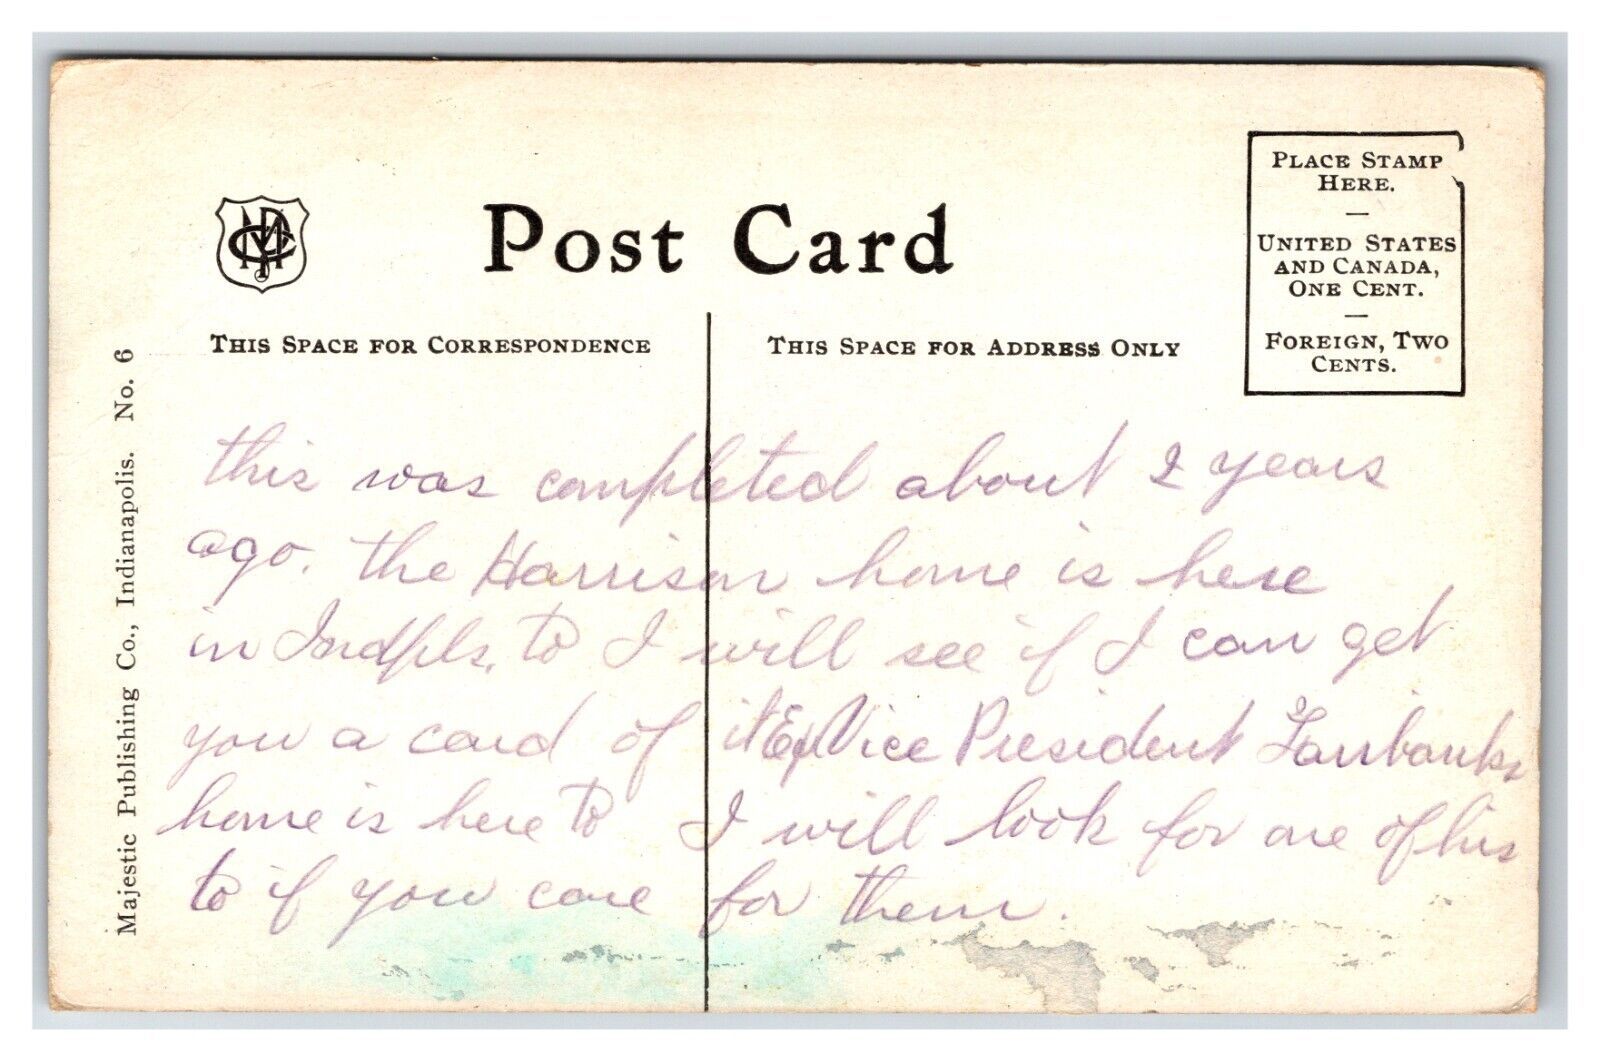 Post Card
PLACE STAMP
HERE.
—
UNITED STATES
AND CANADA,
ONE CENT.
—
FOREIGN, TWO
CENTS.
THIS SPACE FOR CORRESPONDENCE
THIS SPACE FOR ADDRESS ONLY
Majestic Publishing Co., Indianapolis. No. 6
this was completed about 2 years
ago. the Harrison home is here
in Indpls. to I will see if I can get
you a card of it Ex Vice President Fairbanks
home is here to I will look for one of his
to if you care for them.